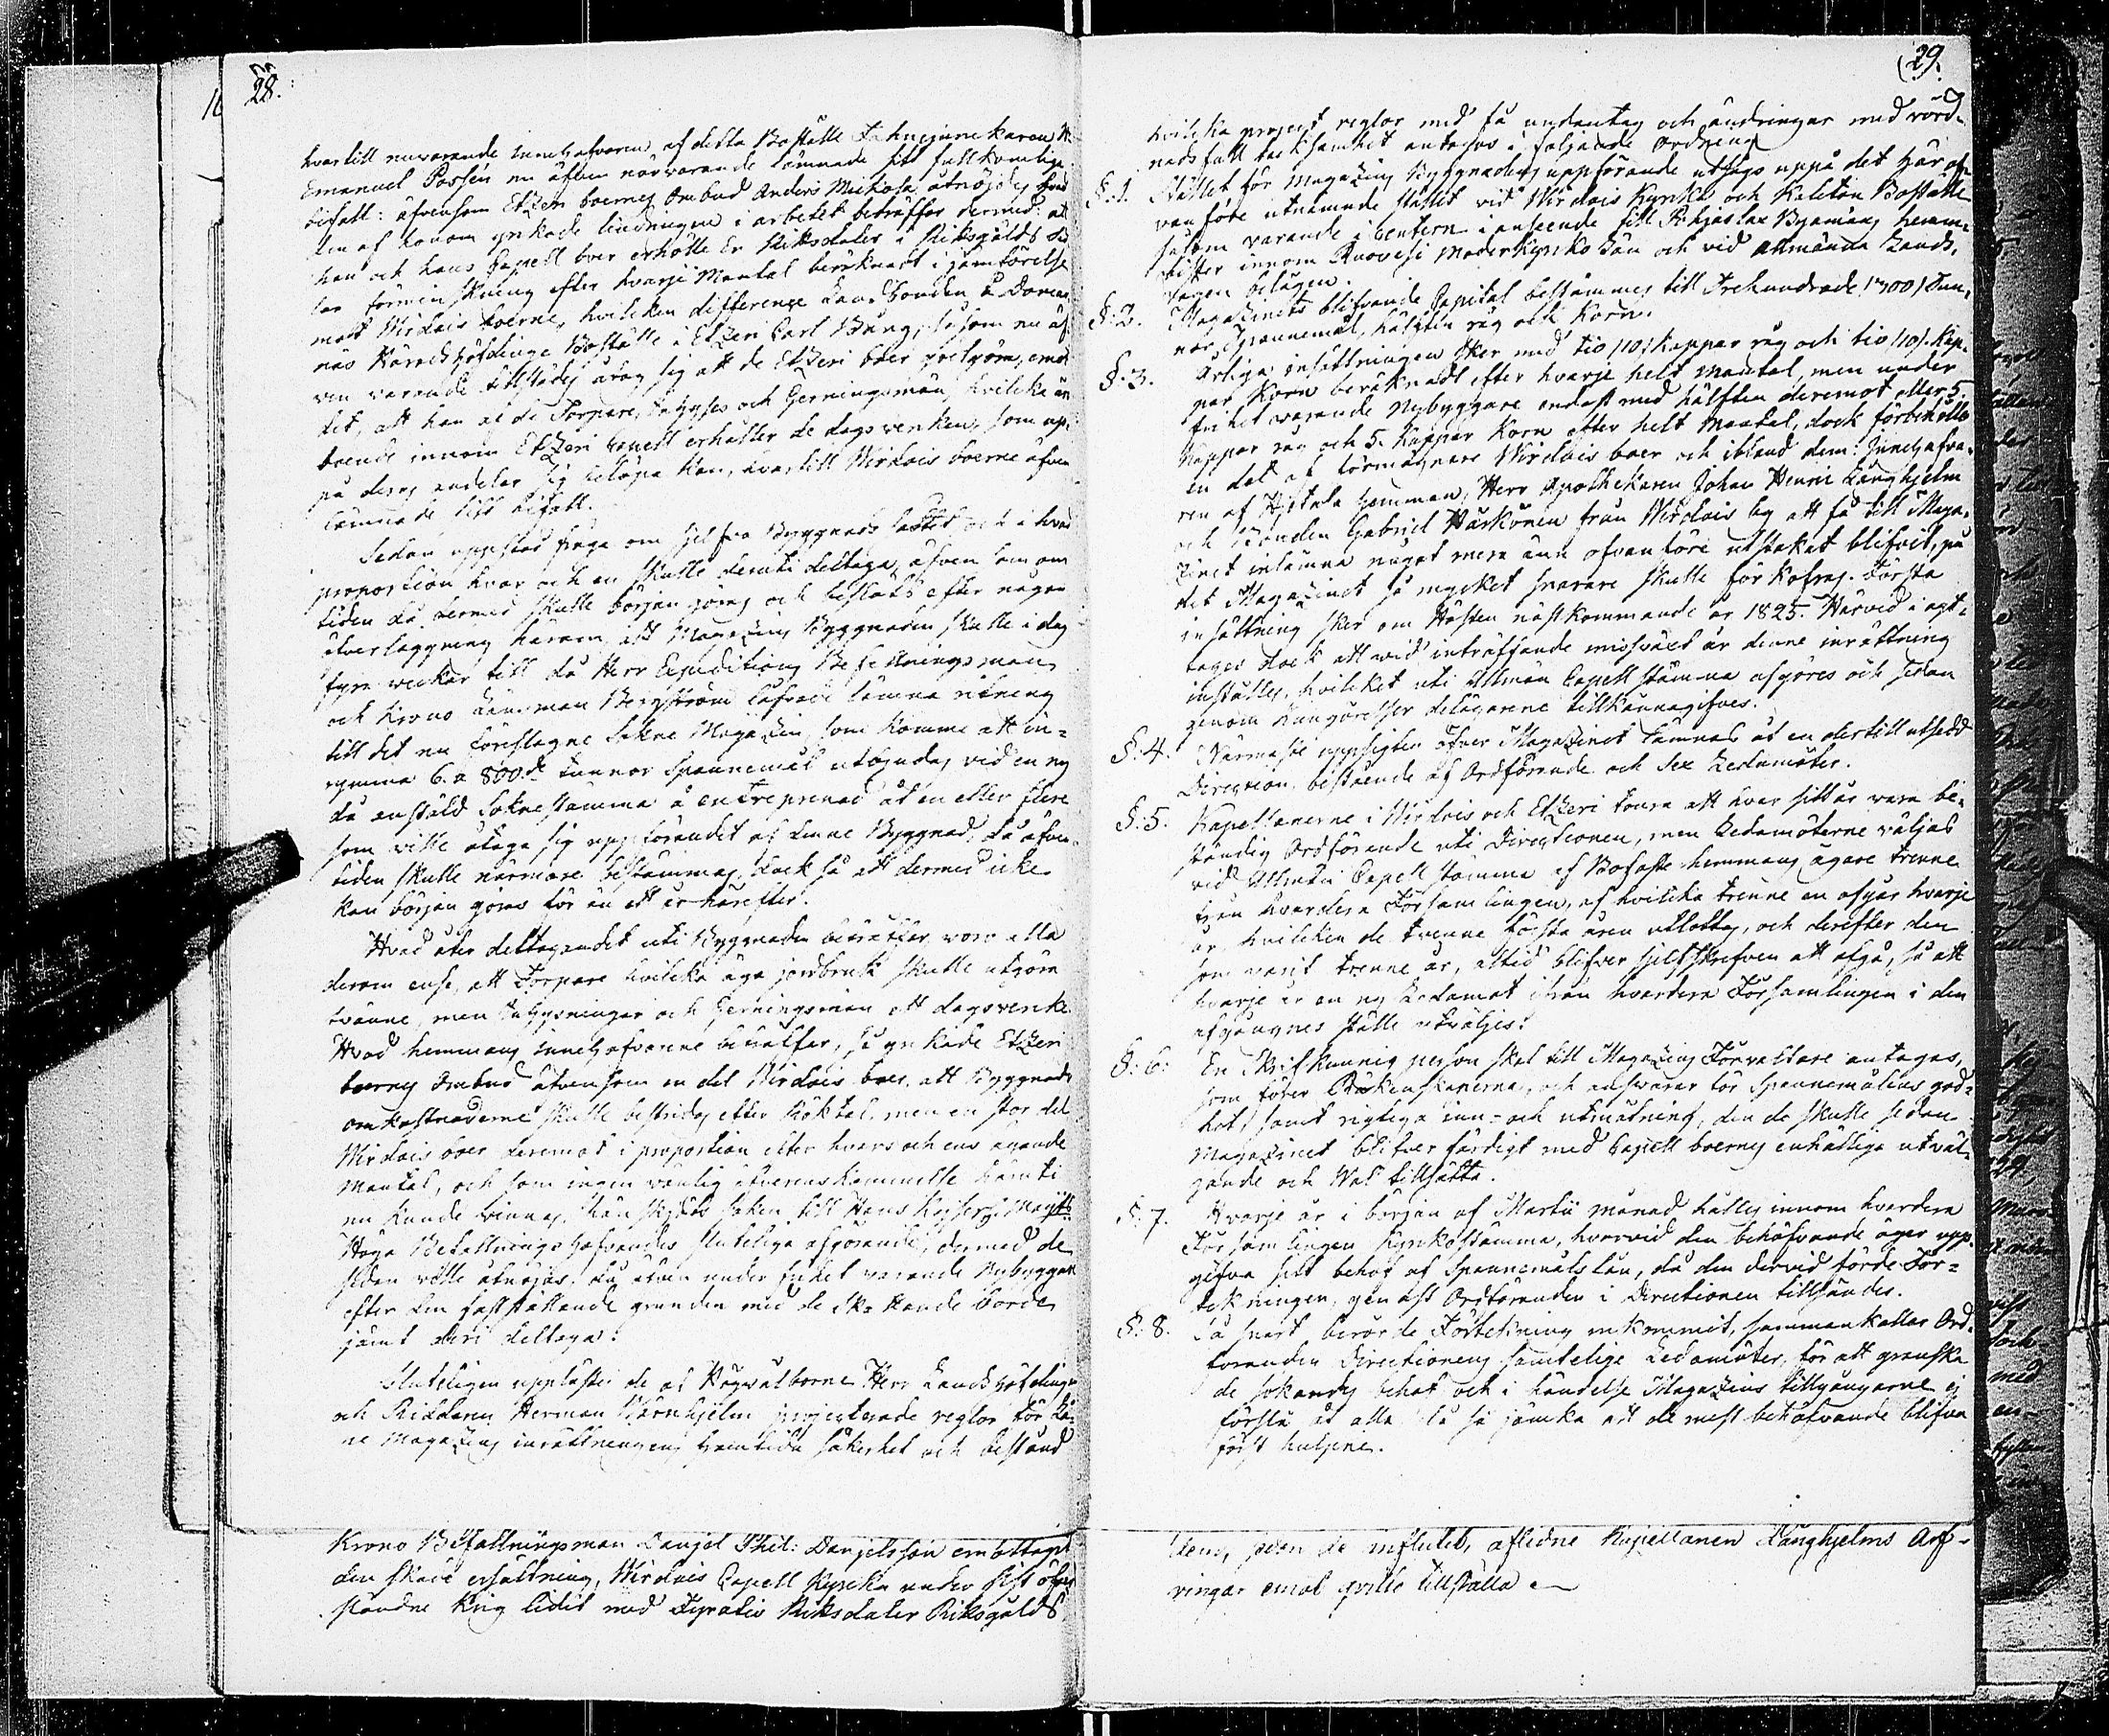 28.
hvartill nuvarande Innehafvaren af detta Boställe Fahnejunckaren H
Emanuel Possén nu äfven närvarande lämnade sitt fullkomlige
bifall: äfvensom Etzeri boernes Ombud Anders Mickola åtnöjdes
den af honom yrkade lindringen i arbetet beträffar dermed: at
han och hans Capell boer erhölle En Riksdaler i Riksgälds
förminskning efter hvarje Mantal beräknadt i jämförelse
mot Wirdois boerne, hvilken difference Landbonden å
näs Häradshöfdinge Boställe i Etzeri Carl Bång, såsom nu äf
ven varande tillstädes åtog sig att de Etzeri boer godtgöra, emot
det, att han af de Torpare, Inhyses och Gerningsmän, hvilka är
boende innom Etzeri Capell erhåller de dagsverken, som up
på deras andelar sig belöpa kan, hvartill Wirdois boerne äfven
lämnade sitt bifall.
Sedan uppstod fråga om sjelfva Byggnads sättet och i hvad
proportion hvar och en skulle deruti deltaga, äfven som om
tiden då dermed skulle början göras och beslöts efter någon
öfverläggning härom, att Magazins Byggnaden skulle i dag
fyra veckor till då Herr Expeditions Befallningsman
och Krono Länsman Bergström lofvade lämna ritning
till det nu föreslagne Sokne Magazin, som komme att in=
rymma 6. a 800.de tunnor Spannemål utbjudas vid en ny
då anstäld Soknestämma å entreprenad åt en eller flere
som ville åtaga sig uppförandet af denne Byggnad, då äfven
tiden skulle närmare bestämmas, dock så att dermed icke
kan början göras för än ett år härefter.
Hvad åter deltagandet uti Byggnaden beträffar, voro alla
derom ense, att Torpare hvilka äga jordbruk skulle utgöra
tvänne, men Inhysningar och Gerningsmän ett dagsverke.
Hvad hemmans Innehafvarene beträffar, så yrkade Etzeri
boernes Ombud äfvensom en del Wirdois boer, att Byggnads
omkostnaderne skulle bestridas efter Röktal, men en stor del
Wirdois boer deremot i proportion efter hvars och ens ägande
Mantal, och som ingen vänlig öfverenskommelse häruti
nu kunde vinnas, hänskjöts saken till Hans Kejserl. Maj:ts
Höga Befallningshafvandes slutliga afgörande, dermed de
sedan ville åtnöjas. Då äfven under frihet varande Nybyggare
efter den fastställande grunden med de Skattande borde
jämt deri deltaga.
Sluteligen upplästes de af Högvälborne Herr Landshöfdingen
och Riddaren Herman Wärnhjelm projecterade reglor för den=
ne Magazins inrättningens framtida säkerhet och bestånd
Krono Befallningsman Danjel Phil: Danjelsson emottagit
den skade ersättning, Wirdois Capell Kyrka under sist öfver
ståndne Krig lidit med Fyratio Riksdaler Riksgälds
29.
hvilka project reglor med få undantag och ändringar med vörd=
nadsfull tacksamhet antogos i följande Ordning
§. 1. Stället för Magazins Byggnadens uppförande utsågs uppå det här of=
van före utnämnde stället vid Wirdois Kyrka och Kaleton Boställe
såsom varande i Centern i anseende till Pohjaslax Byamäns hemm=
vister innom Ruovesi Moderkyrko Län och vid allmänna Lands=
vägen belägen.
§. 2. Magazinets blifvande Capital bestämmes till Trehundrade /300/ Tun=
nor Spannemål, hälften råg och Korn.
§. 3. Årliga insättningen sker med tio /10/ kappar råg och tio /10/ Kap=
par Korn beräknadt efter hvarje helt Mantal, men under
frihet varande Nybyggare endast med hälften deremot eller 5.
Kappar råg och 5. Kappar Korn efter helt Mantal, dock förbehölls
en del af förmögnare Wirdois boer och ibland dem: Innehafva=
ren af Hemman, Herr Apothekaren Johan Henric Långhjelm
och Bonden Gabriel Härkönen från Wirdois by att få till Maga=
zinet inlämna något mera ann ofvanföre utstakat blifvit, på
det Magazinet så mycket snarare skulle förkofras. Första
insättning sker om Hösten nästkommande år 1825. Härvid i akt=
tages dock att vid inträffande missväxt år denne inrättning
inställes, hvilket uti Allmän Capell stämma afgöres och sedan
genom Kungörelser delägarene tillkännagifves.
§. 4. Närmaste uppsigten öfver Magazinet lämnas åt en dertill utsedd
Direction, bestående af Ordförande och Sex Ledamöter.
§: 5. Kapellanerne i Wirdois och Etzeri toura att hvar sitt år vara be=
ständig Ordförande uti Directionen, men Ledamöterne väljas
vid Allmän Capell stämma af Bofaste hemmans ägare trenne
från hvardera Församlingen, af hvilka trenne en afgår hvarje
år hvilken de tvenne första åren utlottas, och derefter den
som varit trenne år, altid blifver sjelfskrefven att afgå, så att
hvarje år en ny Ledamot ifrån hvardera Församlingen i den
afgångnes ställe utväljes.
§: 6: En Skrifkunnig person skal till Magazins Förvaltare antagas,
som förer Räkenskaperna, och answarar för Spannemålens god=
het, samt rigtiga inn- och utmätning, den de skulle sedan
Magazinet blifver färdigt med Capell boernes enhälliga utväl=
jande och Wal tillsätta.
§: 7. Hvarje år i början af Martii månad hålles innom hvardera
Församlingen Kyrkostämma, hvarvid den behöfvande äger upp=
gifva sitt behof af Spannemåls lån, då den dervid förde För=
tekningen, genast Ordföranden i Directionen tillsändes.
§. 8. Så snart berörde Förtekning inkommit, sammankallar Ord=
föranden Directionens samtelige Ledamöter, för att granska
de sökandes behof och i händelse Magazins tillgångarne ej
förslå åt alla då så jämka att de mest behöfvande blifva
först hulpne.
dens, sedan de influtit, aflidne Kapellanen Långhjelms Arf=
vingar emot qvitto tillställa